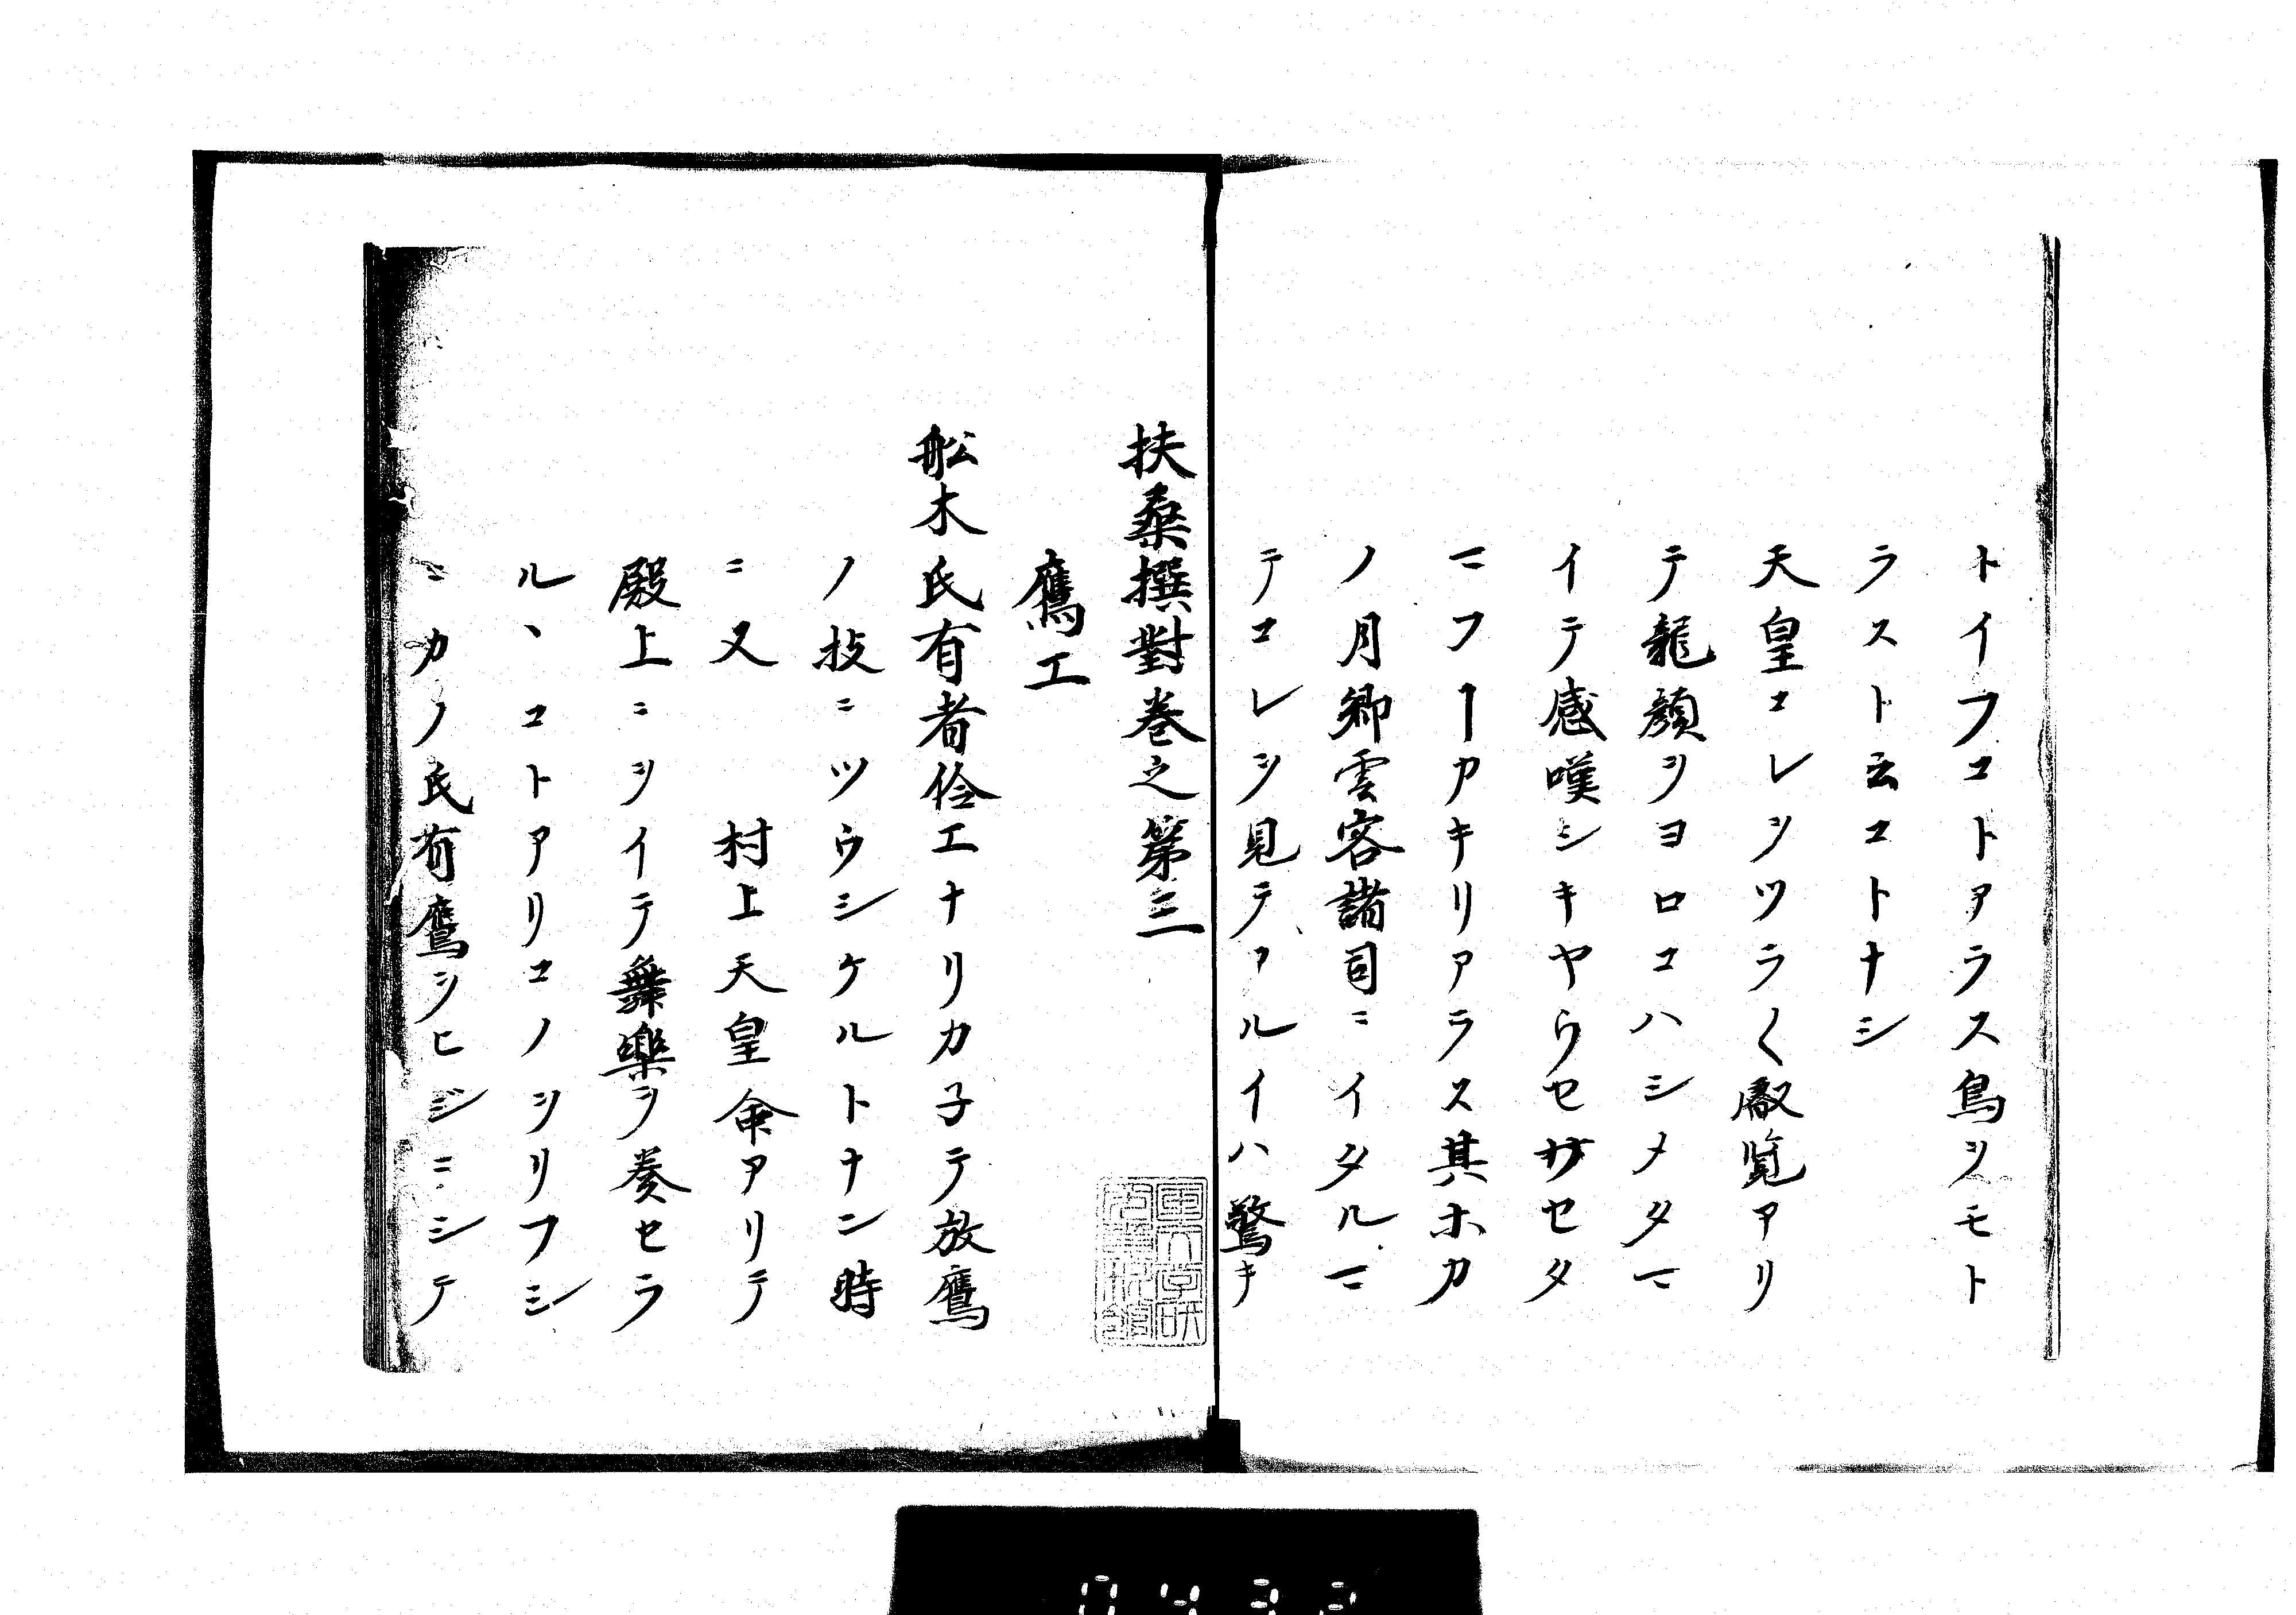 トイフコトアラス鳥ヲモト
ラスト云コトナシ
天皇コレヲツラ〱叡覧アリ
テ龍顔ヲヨロコハシメタマ
イテ感嘆シキヤウセサセタ
マフーアキリアラス其ホカ
ノ月卿雲客諸司ニイタルマ
テコレヲ見テアルイハ驚キ
扶桑撰對巻之第三
鷹工
舩木氏有者伶工ナリカ子テ放鷹
ノ技ニツウシケルトナン時
ニ又 村上天皇命アリテ
殿上ニヲイテ舞樂ヲ奏セラ
ルヽコトアリコノヲリフシ
ニカノ氏有鷹ヲヒジニシテ
0432